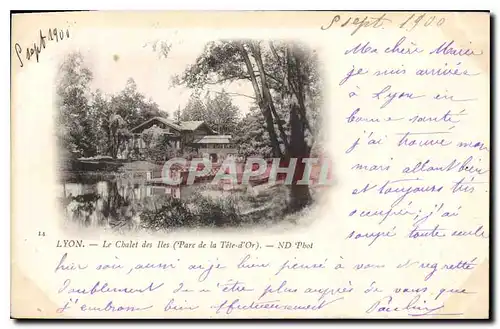 5 sept 1900
5 Sept 1900
Ma chère Marie
je suis arrivée
à Lyon en
bonne santé
j'ai trouvé mon
mari allant bien
et toujours très
occupé, j'ai
soupé toute seule
CARTORUM
11
LYON. - Le Chalet des Iles (Parc de la Tête-d'Or). - ND Phot
hier soir, aussi ai-je bien pensé à vous et regretté
doublement de n'être plus auprès de vous
j'embrasse bien affectueusement Pauline